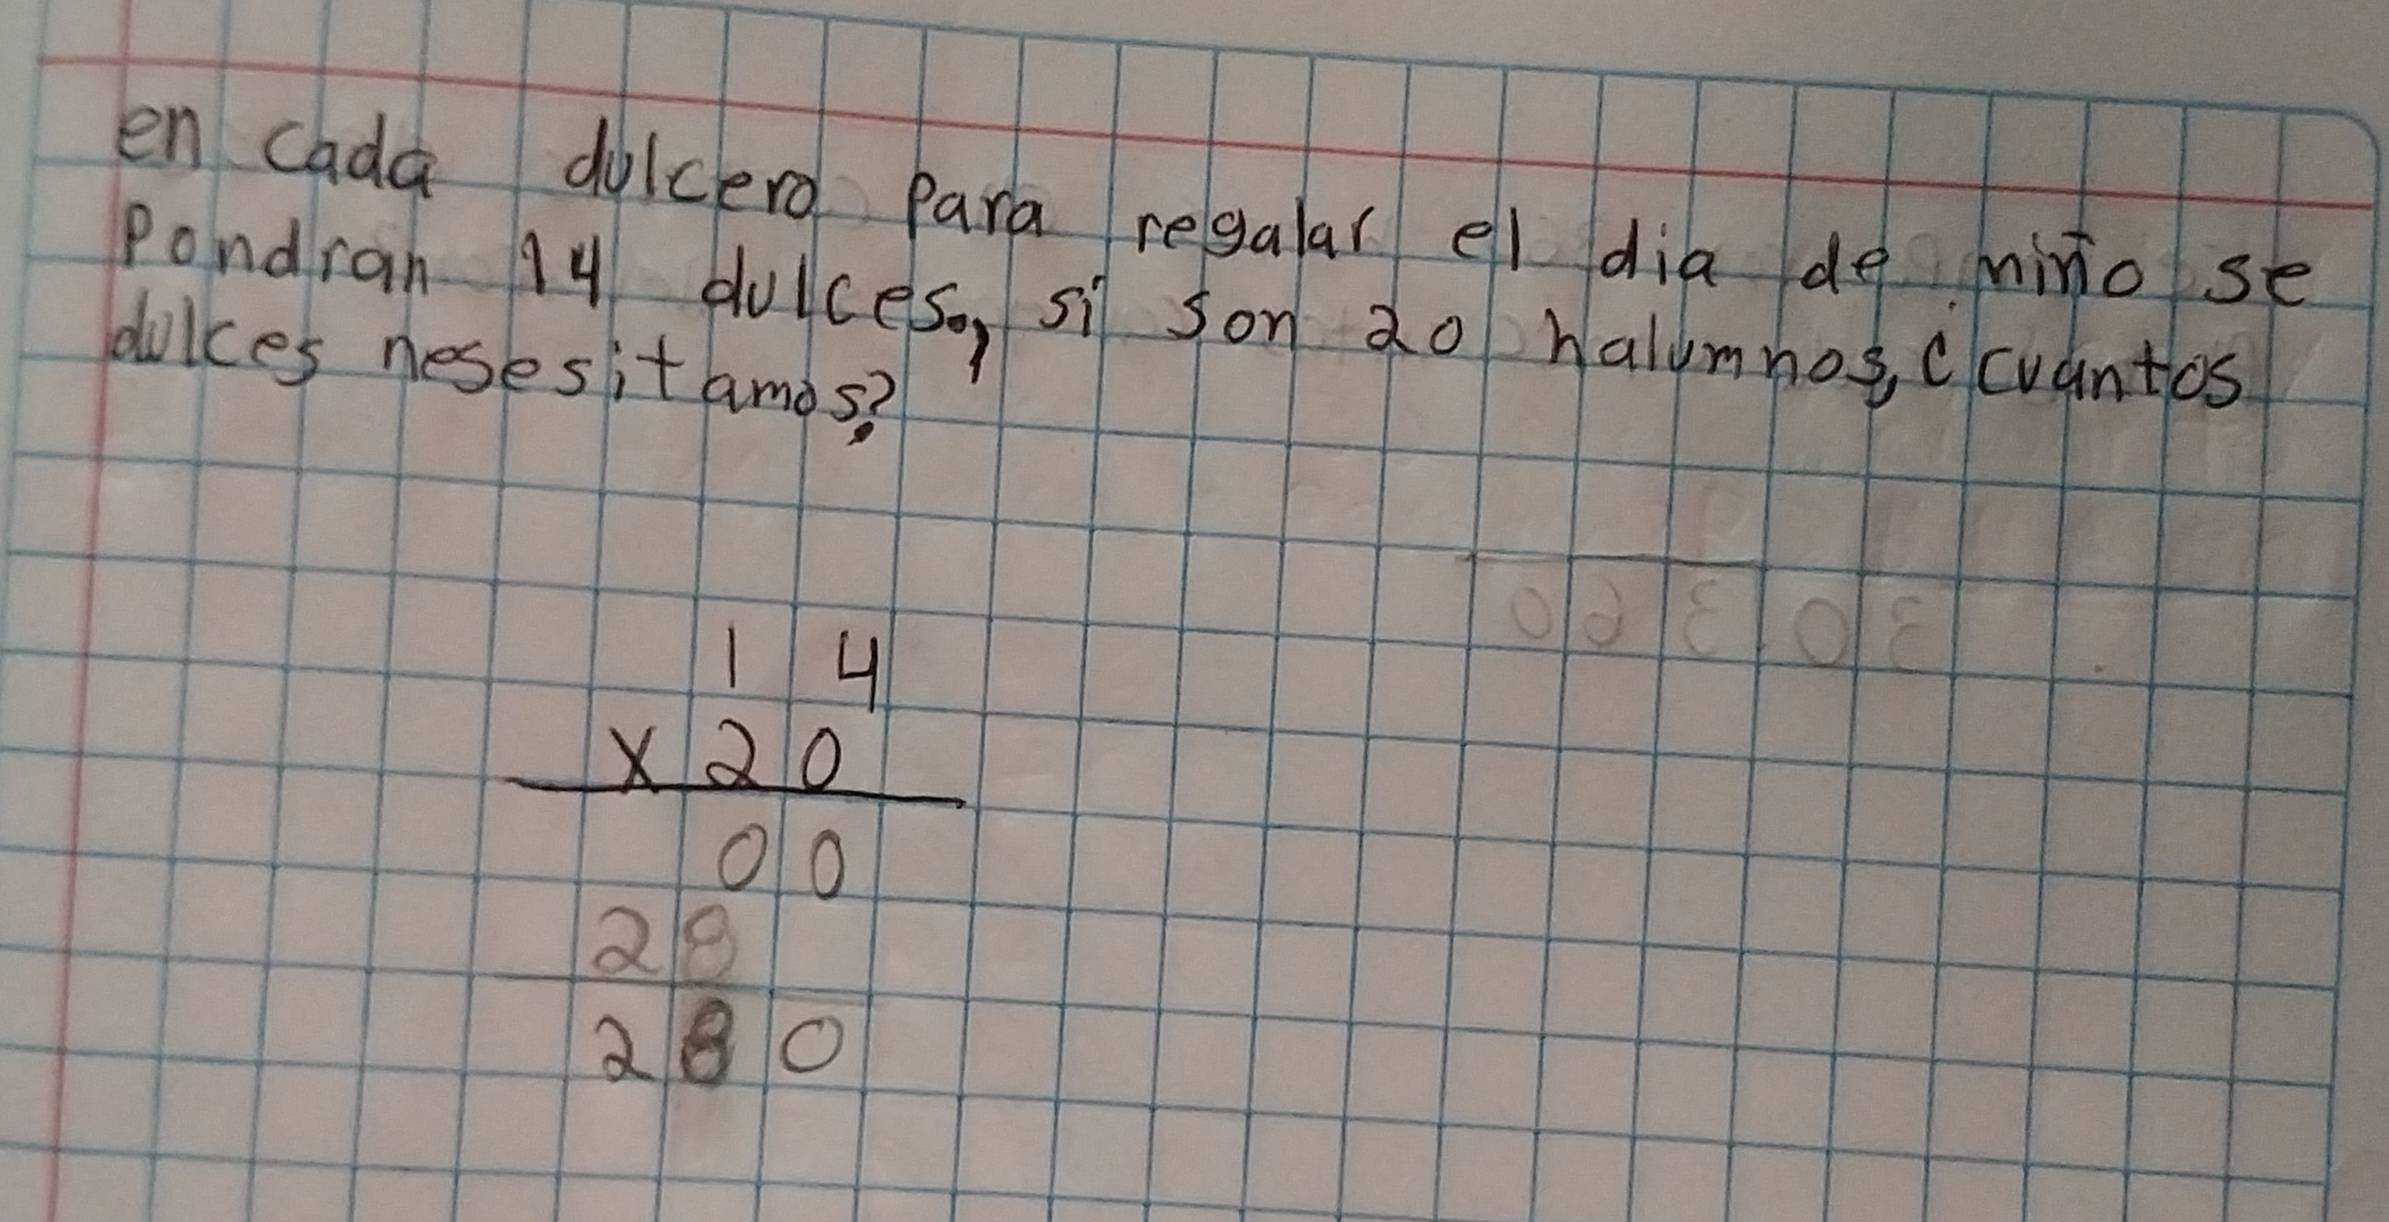 en cada dulcero para regalar el dia de niño se
Pondran 14 dulces., si son 20 halumnos, ¿cuantos
dulces nesesitamos?
14
x20
00
28
280